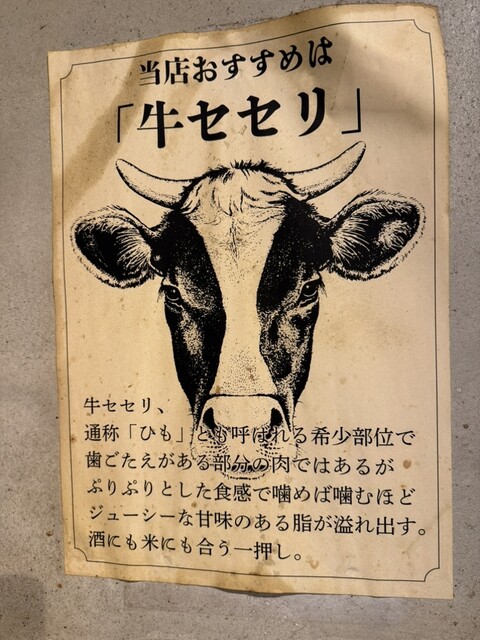 当店おすすめは
「牛セセリ」
牛セセリ、
通称「ひも」とも呼ばれる希少部位で
歯ごたえがある部分の肉ではあるが
ぷりぷりとした食感で噛めば噛むほど
ジューシーな甘味のある脂が溢れ出す。
酒にも米にも合う一押し。